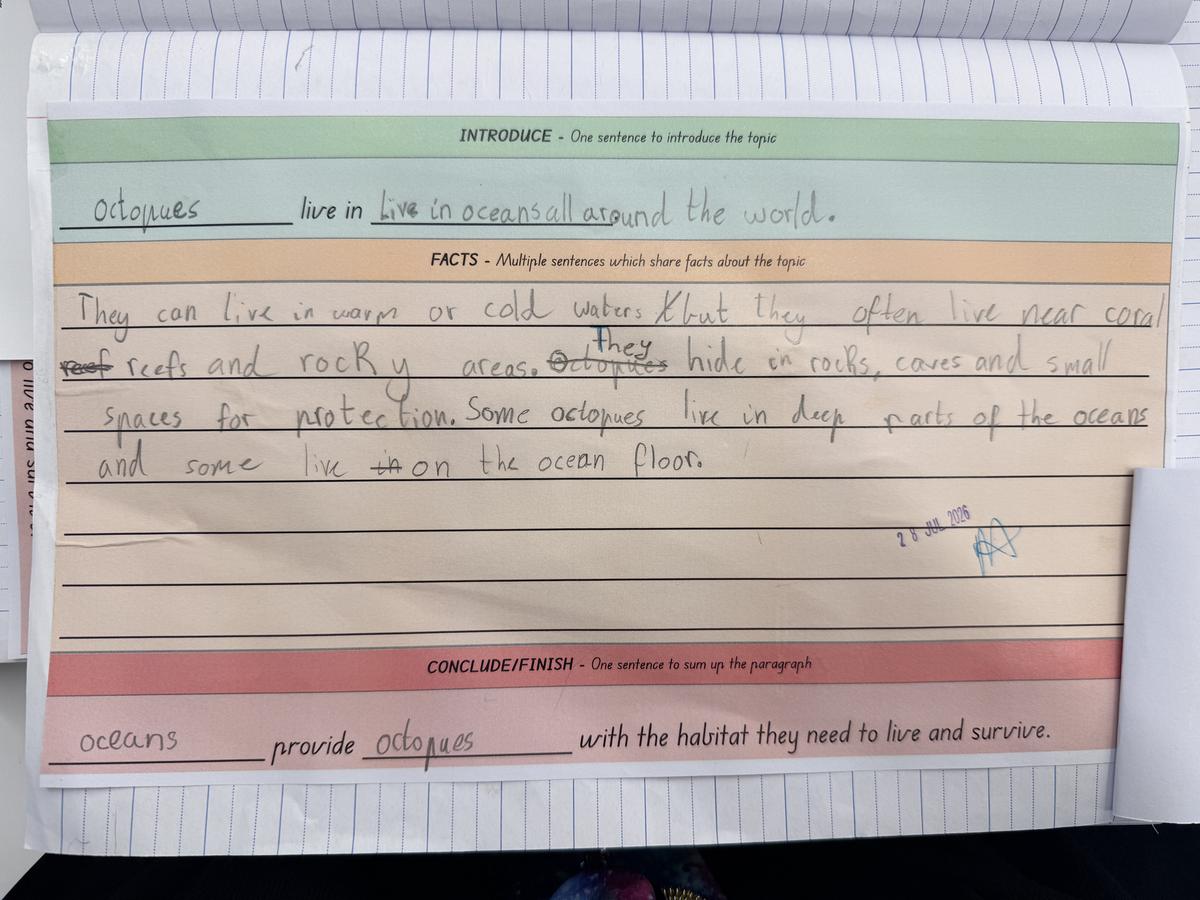 INTRODUCE - One sentence to introduce the topic
octopues live in Live in oceans all around the world.
FACTS - Multiple sentences which share facts about the topic
They can live in warm or cold waters but they often live near coral
reef reefs and rocky areas. Octopues They hide in rocks, caves and small
spaces for protection. Some octopues live in deep parts of the oceans
and some live in on the ocean floor.
28 JUL 2026
CONCLUDE/FINISH - One sentence to sum up the paragraph
oceans provide octopues with the habitat they need to live and survive.